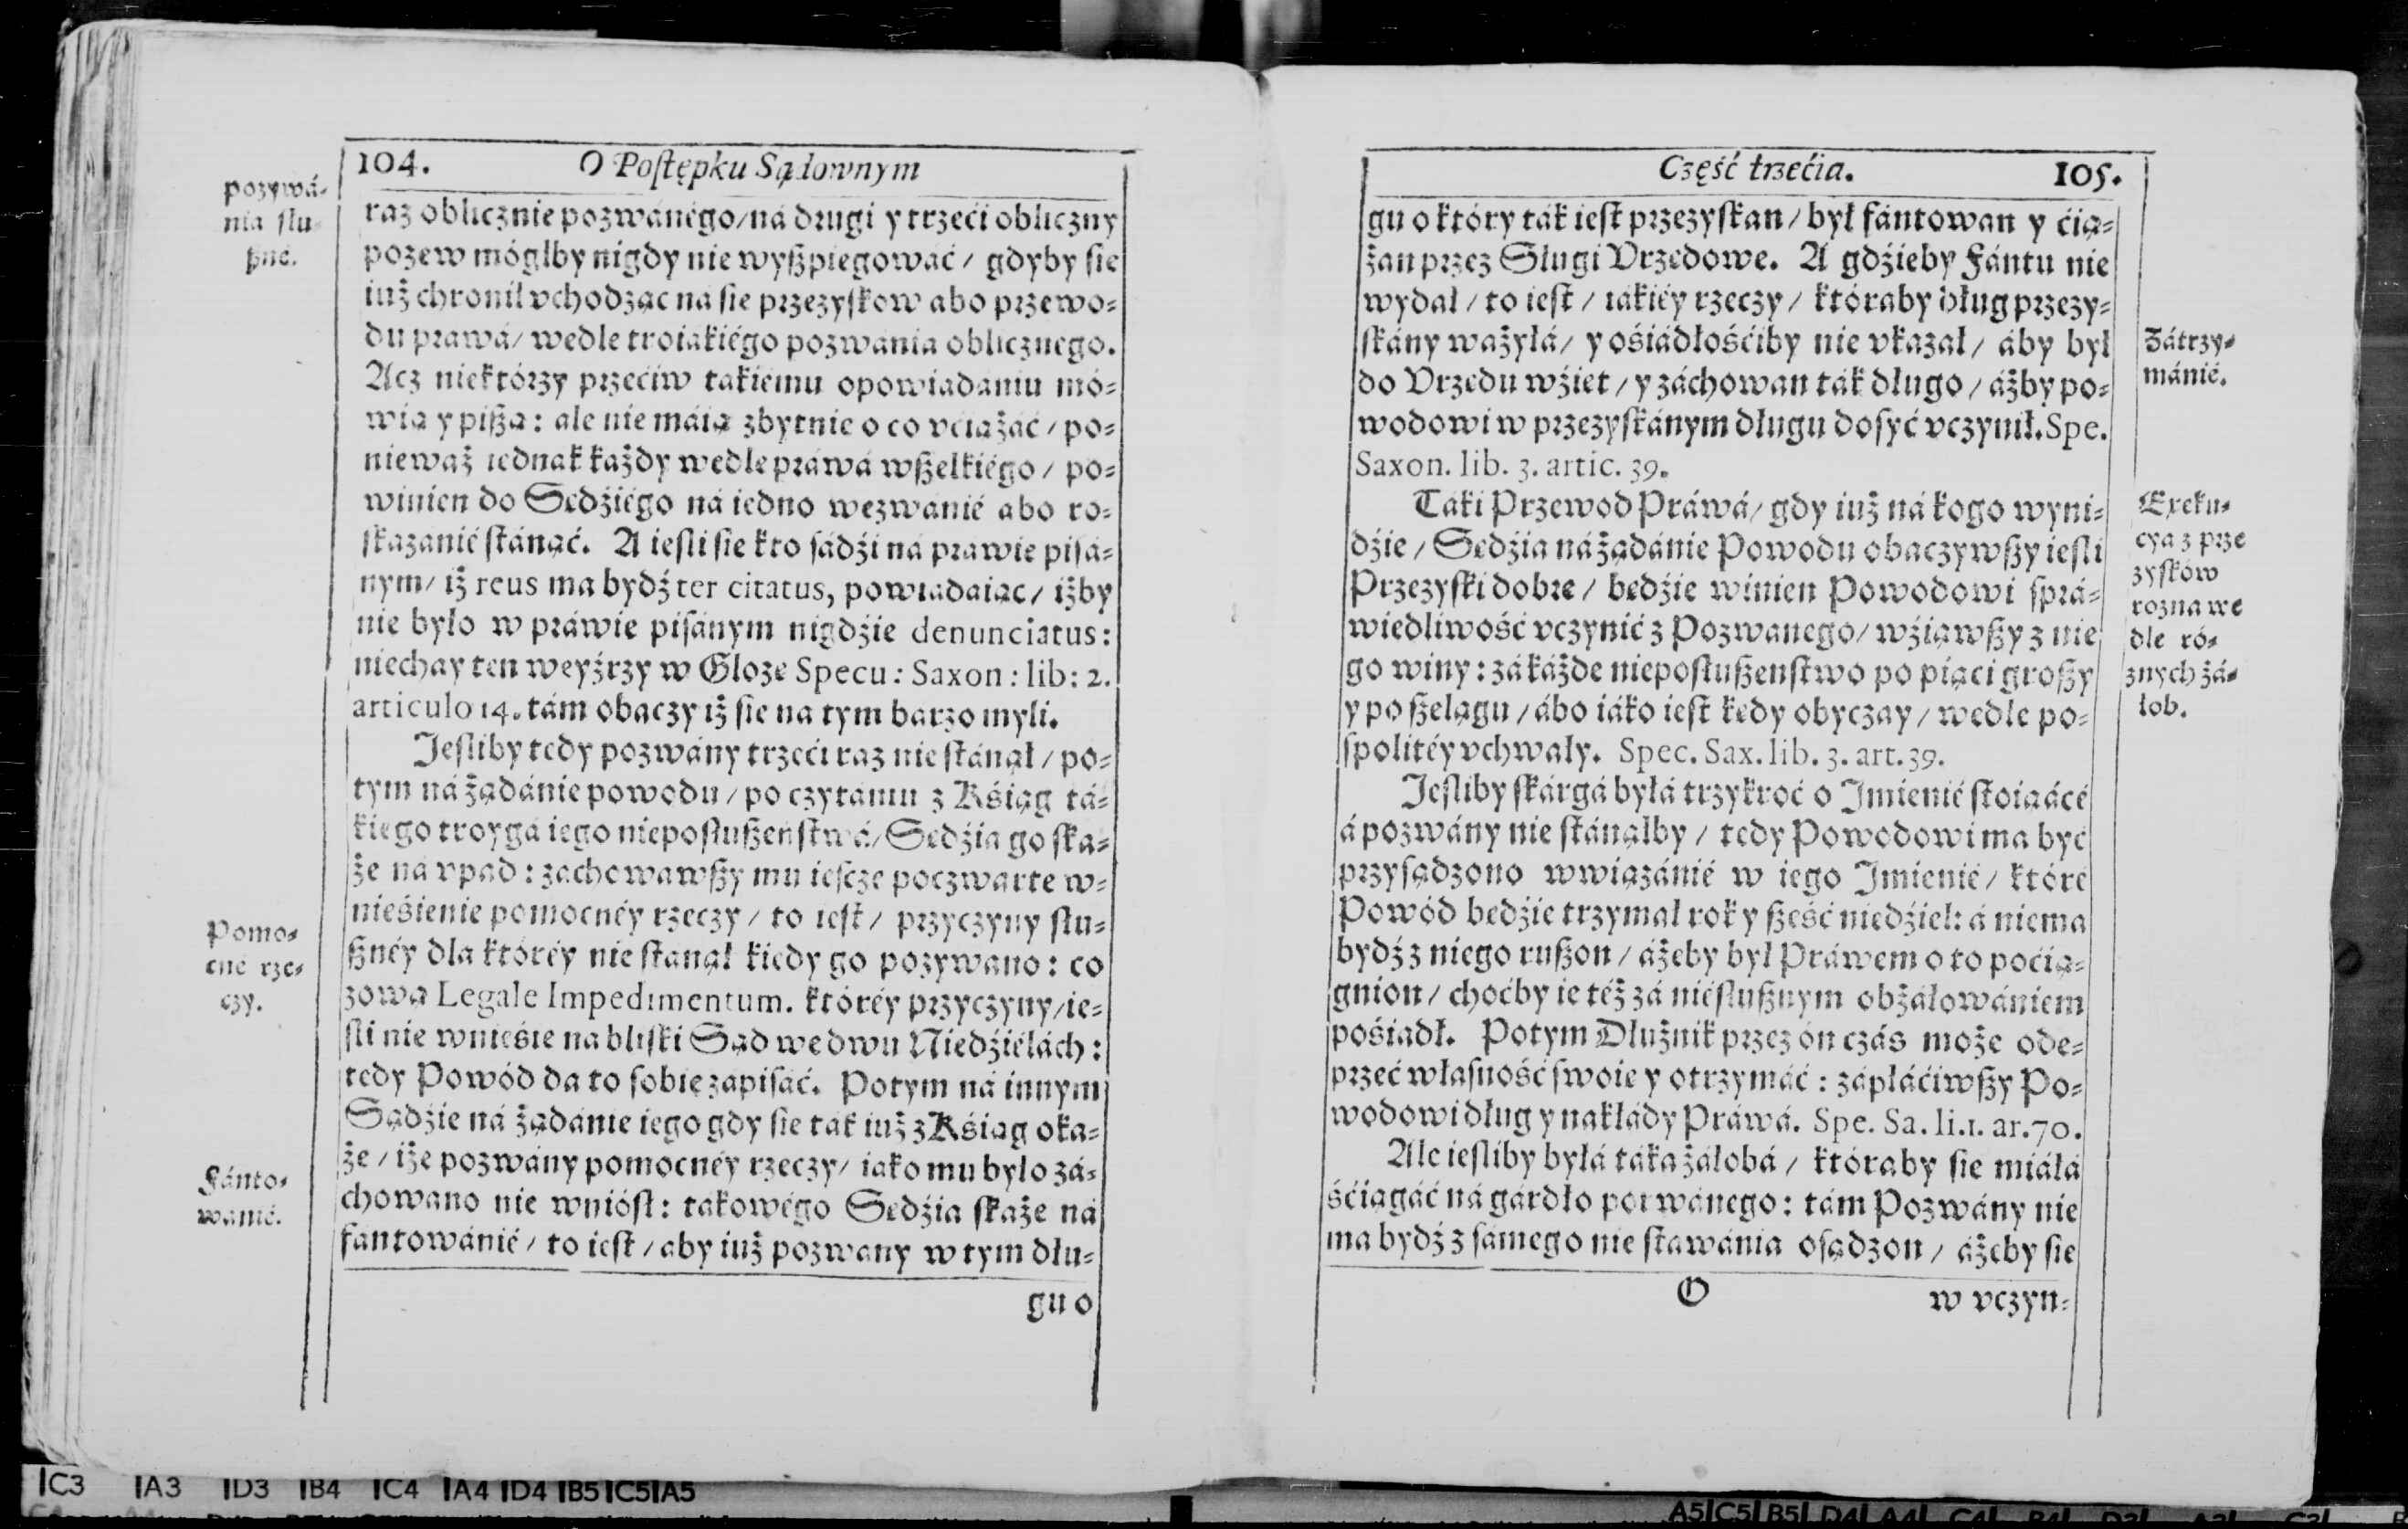 104. O Postępku Sądownym
pozywá-
nia słu-
szné.
raz oblicznie pozwánégo/ ná drugi y trzeći obliczny
pozew mógłby nigdy nie wyszpiegowáć / gdyby sie
iuż chronił vchodząc ná sie przezyskow abo przewo-
du práwá/ wedle troiákiégo pozwánia oblicznego.
Acz niektórzy przećiw tákiému opowiádániu mó-
wią y piszą: ale nie máią zbytnie o co vćiążáć / po-
nieważ iednák każdy wedle práwá wszelkiégo / po-
winien do Sędźiégo ná iedno wezwánié abo ro-
skazánié stánąć. A iesli sie kto sádźi ná práwie pisá-
nym/ iż reus ma bydź ter citatus, powiádáiąc/ iżby
nie było w práwie pisánym nigdźie denunciatus:
niechay ten weyźrzy w Glozę Specu: Saxon: lib: 2.
articulo 14. tám obaczy iż sie na tym bárzo myli.
Jesliby tedy pozwány trzeći raz nie stánął / po-
tym ná żądánie powodu / po czytániu z Kśiąg tá-
kiego troygá iego nieposłuszeństwá/ Sędźia go ska-
że ná vpad: záchowawszy mu iescze poczwarte w-
nieśienie pomocnéy rzeczy / to iest / przyczyny słu-
sznéy dla któréy nie stánął kiedy go pozywano: co
zową Legale Impedimentum. któréy przyczyny/ ie-
sli nie wnieśie na bliski Sąd we dwu Niedźiélách:
tedy Powód da to sobie zápisáć. Potym ná innym
Sądźie ná żądánie iego gdy sie ták iuż z Kśiąg oka-
że / iże pozwány pomocnéy rzeczy/ iáko mu było zá-
chowano nie wniósł: tákowégo Sędźia skaże ná
fántowánié / to iest / aby iuż pozwány w tym dłu-
Pomo-
cné rze-
czy.
Fánto-
wánié.
gu o
Część trzećia. 105.
gu o który ták iest przezyskan / był fántowan y ćią-
żan przez Sługi Vrzędowe. A gdźieby Fántu nie
wydał / to iest / iákiéy rzeczy / któraby dług przezy-
skány ważyłá/ y ośiádłośćiby nie vkazał / áby był
do Vrzędu wźięt / y záchowan ták długo / áżby po-
wodowi w przezyskánym długu dosyć vczynił. Spe.
Saxon. lib. 3. artic. 39.
Táki Przewod Práwá/ gdy iuż ná kogo wyni-
dźie / Sędźia ná żądánie Powodu obaczywszy iesli
Przezyski dobre / będźie winien Powodowi sprá-
wiedliwość vczynić z Pozwanego/ wźiąwszy z nie
go winy: zá káżde nieposłuszeństwo po piąci groszy
y po szelągu / ábo iáko iest kędy obyczay / wedle po-
spolitéy vchwały. Spec. Sax. lib. 3. art. 39.
Jesliby skárgá byłá trzykroć o Jmienié stoiąácé
á pozwány nie stánąłby / tedy Powodowi ma być
przysądzono wwiązánié w iego Jmienié / któré
Powód będźie trzymał rok y sześć niedźiel: á niema
bydź z niego ruszon / áżeby był Práwem o to poćią-
gnion / choćby ie téż zá niésłusznym obżáłowániem
pośiadł. Potym Dłużnik przez ón czás może ode-
przeć własność swoię y otrzymáć: zápłáćiwszy Po-
wodowi dług y nakłády Práwá. Spe. Sa. li.1. ar.70.
Ale iesliby byłá táka żáłobá / któraby sie miáłá
śćiągáć ná gárdło porwánego: tám Pozwány nie
ma bydź z sámego nie stawánia osądzon / áżeby sie
Zátrzy-
mánié.
Exeku-
cya z prze
zysków
rozna we
dle ró-
znych żá-
łob.
O w vczyn-
IC3 IA3 ID3 IB4 IC4 IA4 ID4 IB5 IC5 IA5
A5I C5I B5I D4I A4I C4I B4I D3I A3I C3I